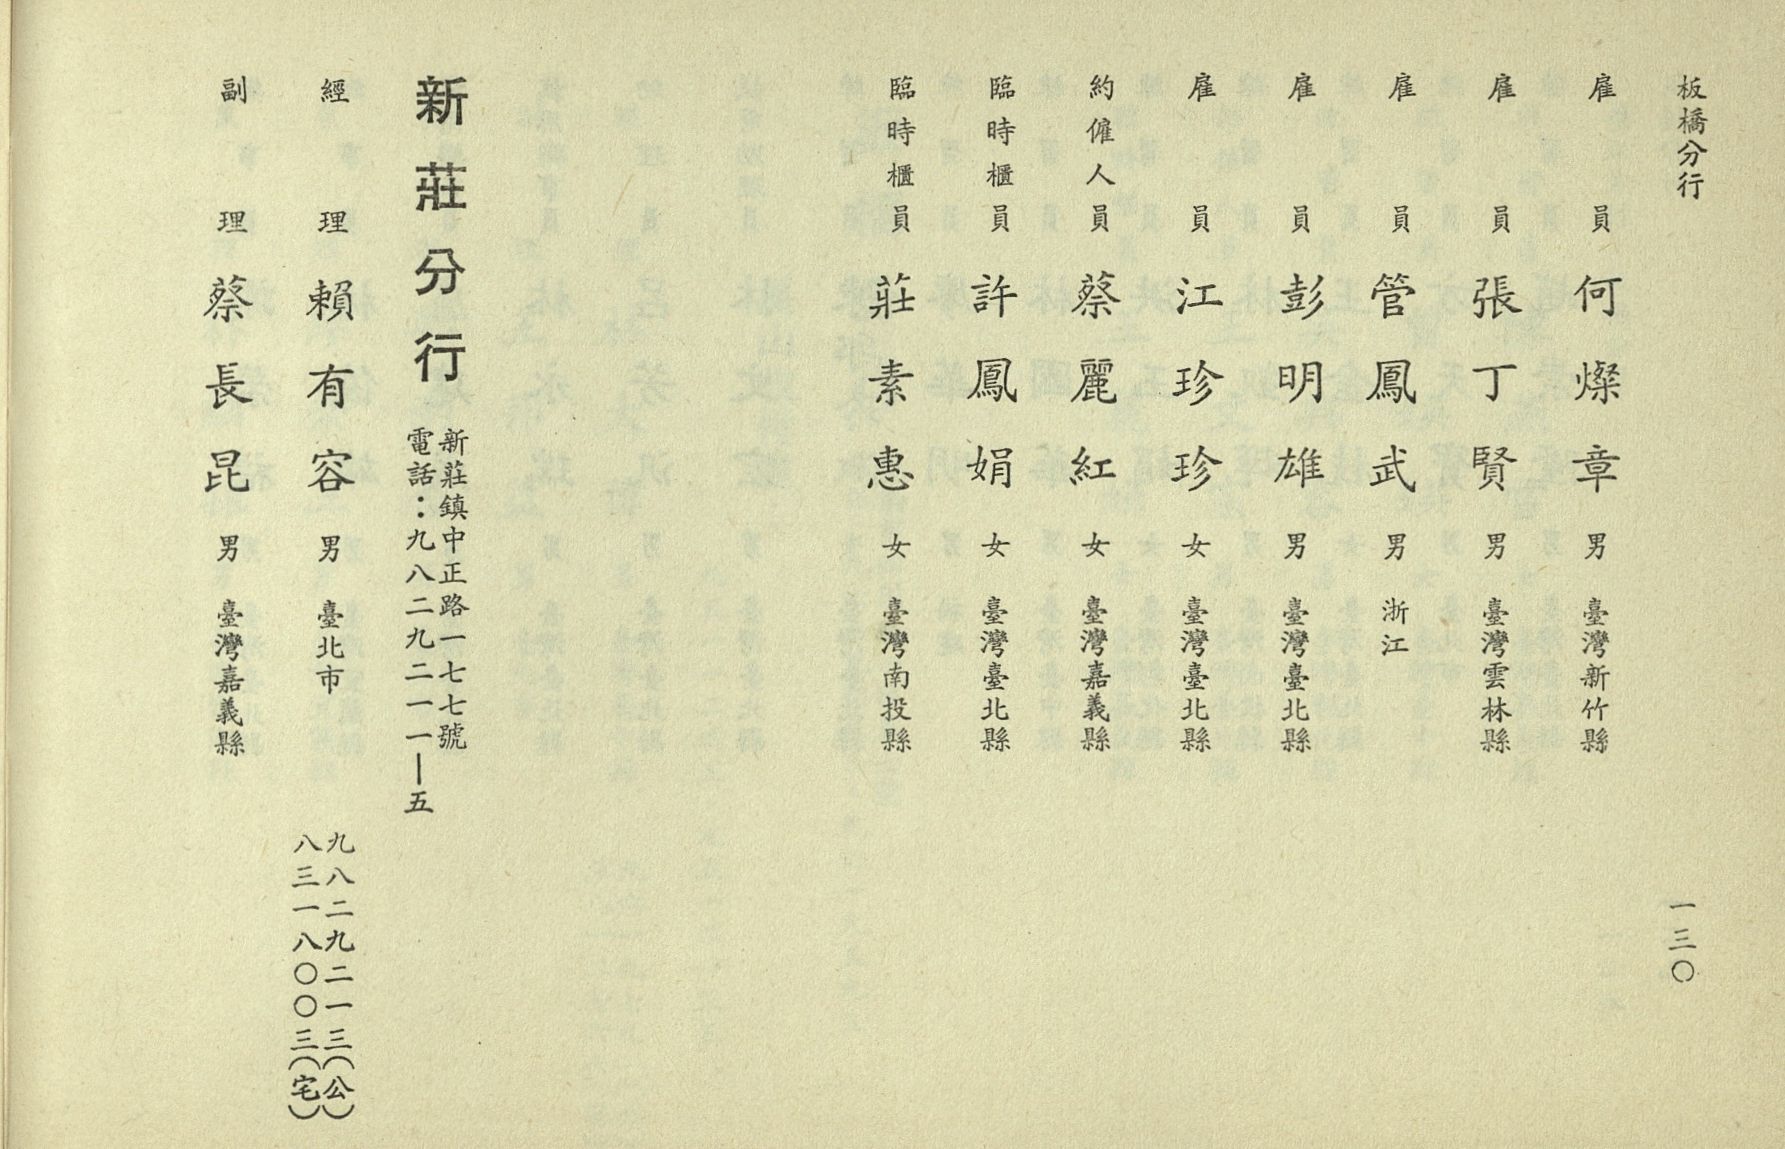 板橋分行
一三〇
雇員 何燦章 男 臺灣新竹縣
雇員 張丁賢 男 臺灣雲林縣
雇員 管鳳武 男 浙江
雇員 彭明雄 男 臺灣臺北縣
雇員 江珍珍 女 臺灣臺北縣
約僱人員 蔡麗紅 女 臺灣嘉義縣
臨時櫃員 許鳳娟 女 臺灣臺北縣
臨時櫃員 莊素惠 女 臺灣南投縣
新莊分行
新莊鎮中正路一七七號
電話：九八二九二一一—五
經理 賴有容 男 臺北市
九八二九二一三(公)
八三一八〇〇三(宅)
副理 蔡長昆 男 臺灣嘉義縣